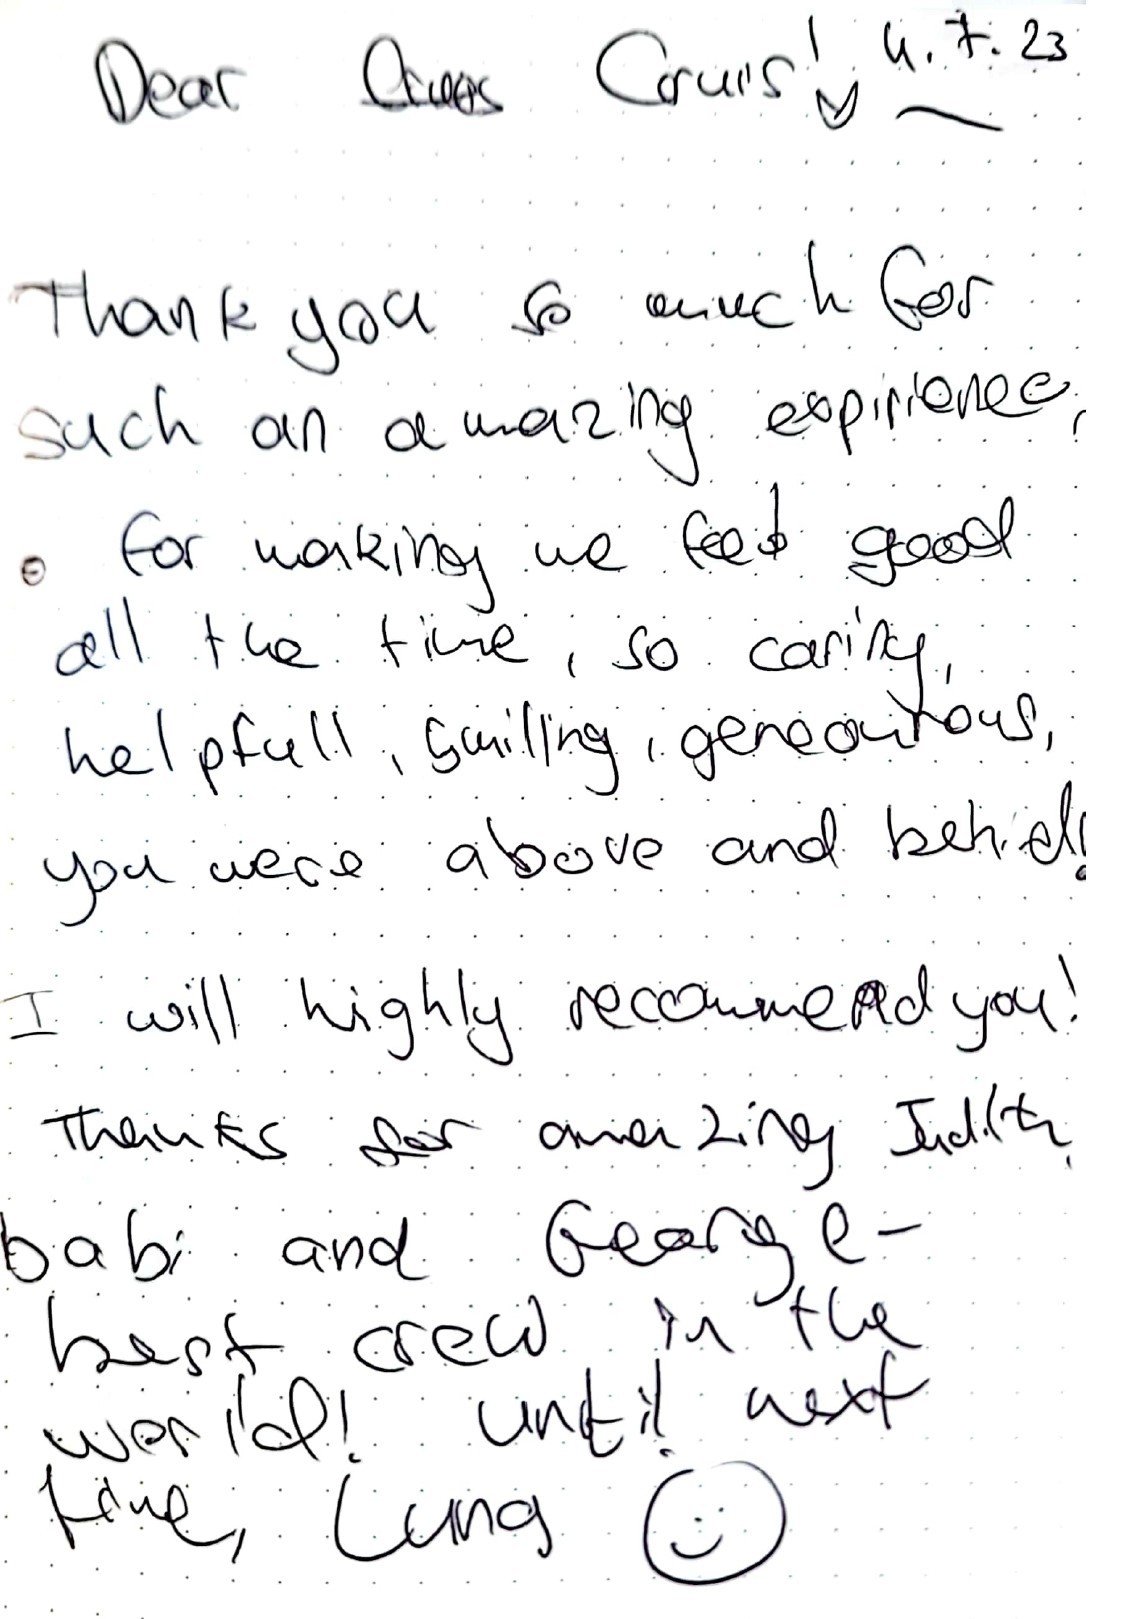 Dear Cruis! 4.7.23
Thank you so much for
such an amazing expirience,
for making me feel good
all the time, so caring,
helpfull, smilling, geneourous,
you were above and behid!
I will highly recommend you!
Thanks for amazing Judith,
babi and George -
best crew in the
world! until next
time, Luna